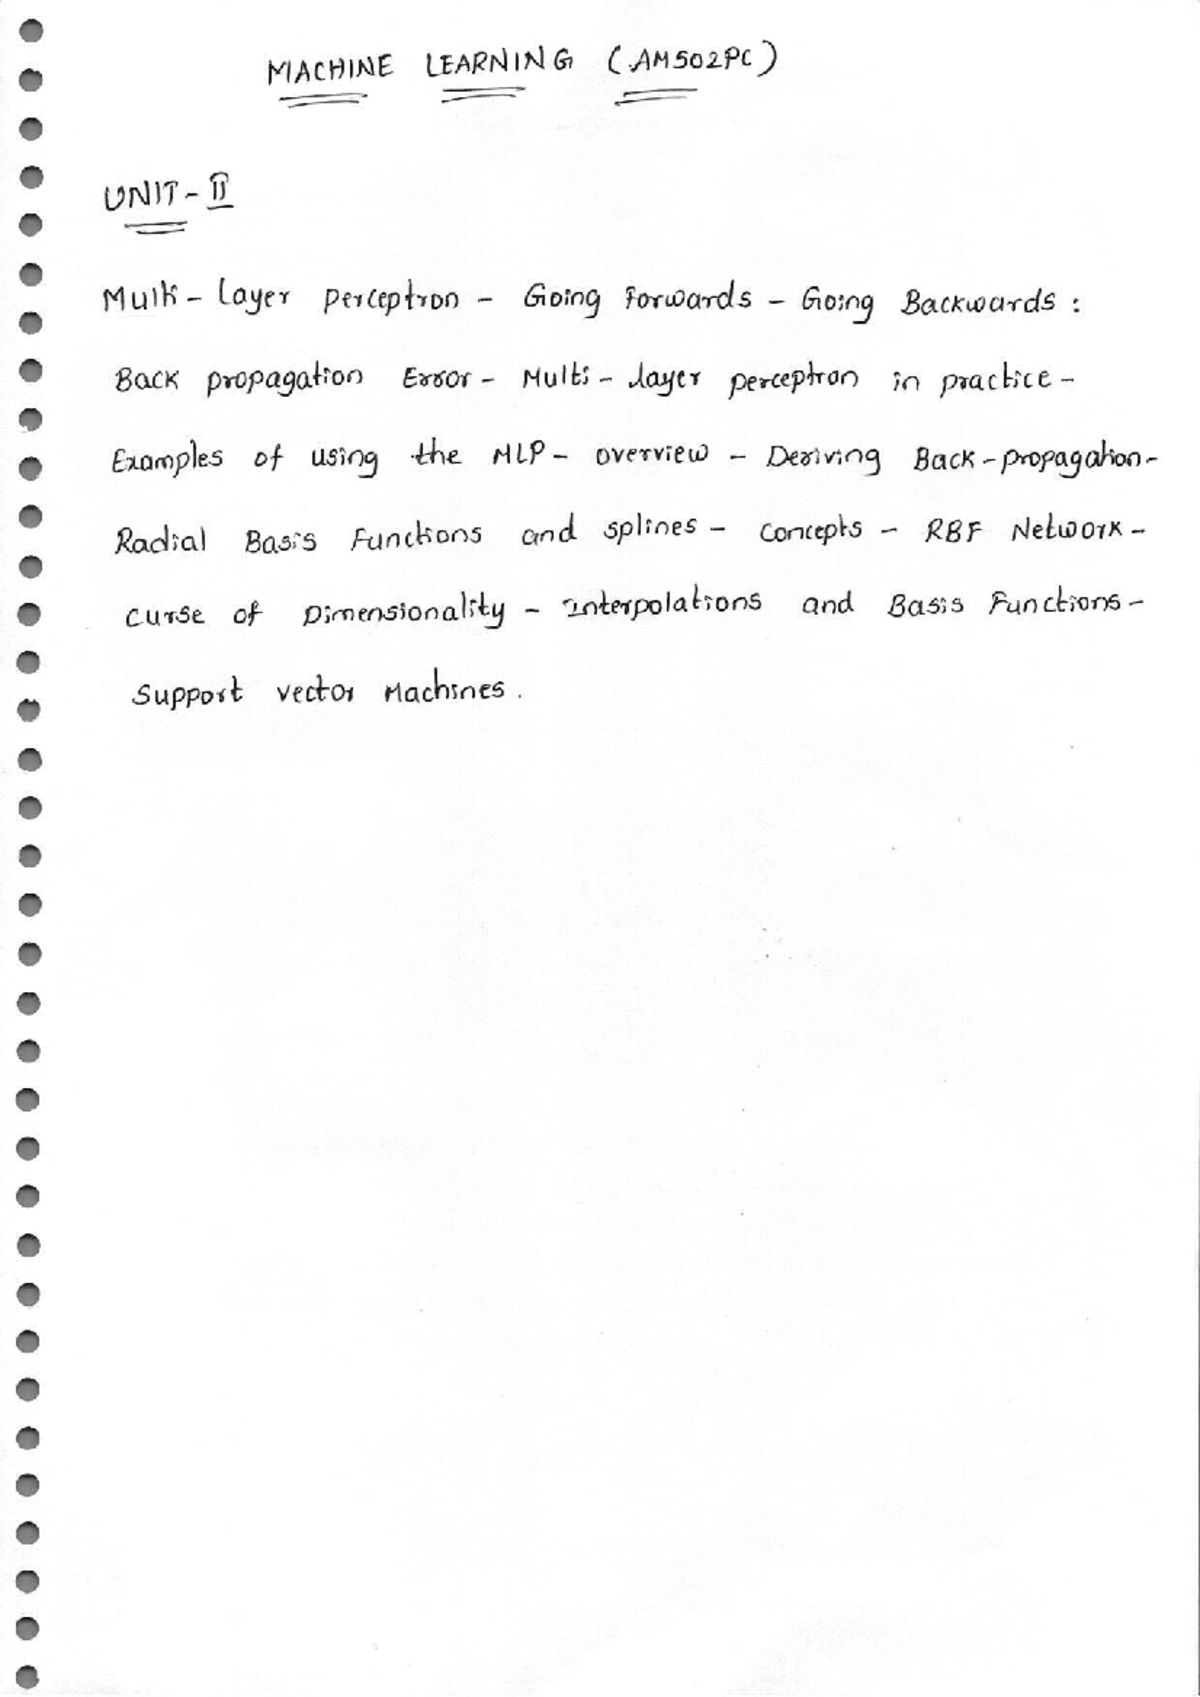 MACHINE LEARNING (AM502PC)
UNIT-II
Multi-Layer perceptron - Going Forwards - Going Backwards:
Back propagation Error - Multi-layer perceptron in practice -
Examples of using the MLP - overview - Deriving Back-propagation-
Radial Basis Functions and splines - concepts - RBF Network-
curse of Dimensionality - Interpolations and Basis Functions-
Support vector Machines.